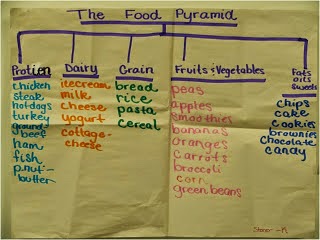 The Food Pyramid
Protien
chicken
steak
hotdogs
turkey
ground
beef
ham
fish
p.nut-
butter
Dairy
icecream
milk
cheese
yogurt
cottage-
cheese
Grain
bread
rice
pasta
cereal
Fruits & Vegetables
peas
apples
smoothies
bananas
oranges
carrots
broccoli
corn
greenbeans
Fats
oils
sweets
chips
cake
cookies
brownies
chocolate
candy